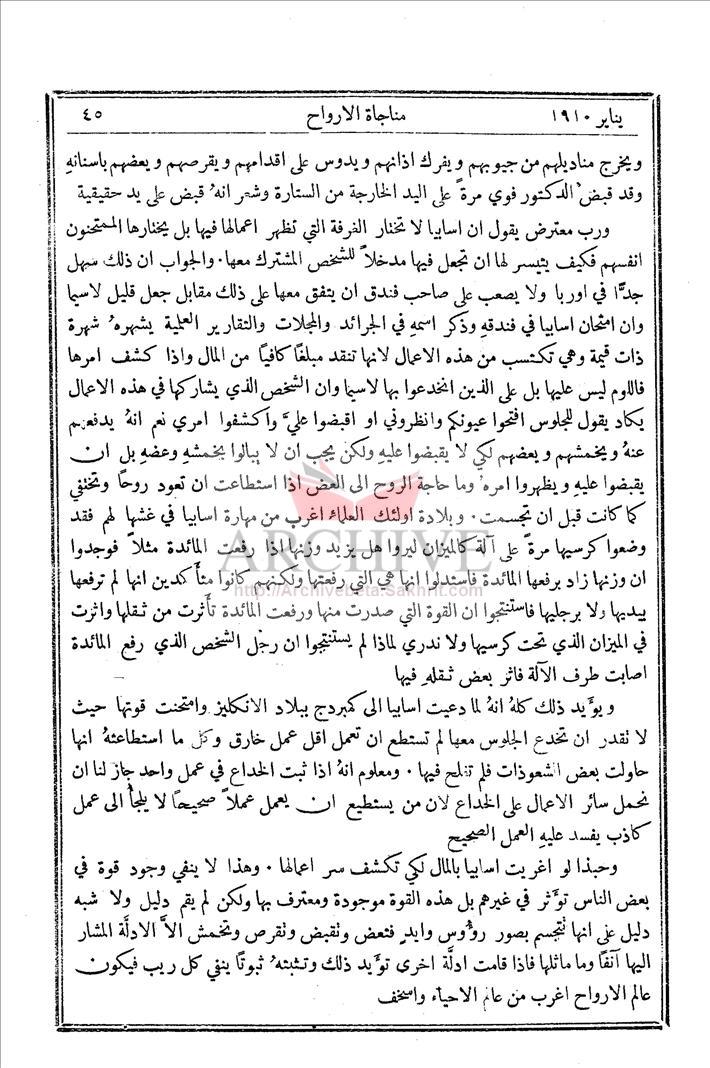 يناير ١٩١٠ مناجاة الارواح ٤٥
ويخرج مناديلهم من جيوبهم ويفرك اذانهم ويدوس على اقدامهم ويقرصهم وبعضهم باسنانهِ
وقد قبض الدكتور فوي مرةً على اليد الخارجة من الستارة وشعر انهُ قبض على يد حقيقية
ورب معترض يقول ان اسابيا لا تختار الغرفة التي تظهر اعمالها فيها بل يختارها الممتحنون
انفسهم فكيف يتيسر لها ان تجعل فيها مدخلاً للشخص المشترك معها٠ والجواب ان ذلك سهل
جدًّا في اوربا ولا يصعب على صاحب فندق ان يتفق معها على ذلك مقابل جعل قليل لاسيما
وان امتحان اسابيا في فندقهِ وذكر اسمهِ في الجرائد والمجلات والتقارير العلمية يشهرهُ شهرة
ذات قيمة وهي تكتسب من هذه الاعمال لانها تنقد مبلغًا كافيًا من المال واذا كشف امرها
فاللوم ليس عليها بل على الذين انخدعوا بها لاسيما وان الشخص الذي يشاركها في هذه الاعمال
يكاد يقول للجلوس افتحوا عيونكم وانظروني او اقبضوا عليَّ واكشفوا امري نعم انهُ يدفعهم
عنهُ ويخمشهم وبعضهم لكي لا يقبضوا عليهِ ولكن يجب ان لا يبالوا بخمشهِ وعضهِ بل ان
يقبضوا عليهِ ويظهروا امرهُ وما حاجة الروح الى العض اذا استطاعت ان تعود روحًا وتختفي
كما كانت قبل ان تجسمت٠ وبلادة اولئك العلماء اغرب من مهارة اسابيا في غشها لهم فقد
وضعوا كرسيها مرةً على آلة كالميزان ليروا هل يزيد وزنها اذا رفعت المائدة مثلاً فوجدوا
ان وزنها زاد برفعها المائدة فاستدلوا انها هي التي رفعتها ولكنهم كانوا متأكدين انها لم ترفعها
بيديها ولا برجليها فاستنتجوا ان القوة التي صدرت منها ورفعت المائدة تأثرت من ثقلها واثرت
في الميزان الذي تحت كرسيها ولا ندري لماذا لم يستنتجوا ان رجل الشخص الذي رفع المائدة
اصابت طرف الآلة فاثر بعض ثقلهِ فيها
ويؤيد ذلك كلهُ انهُ لما دعيت اسابيا الى كمبردج ببلاد الانكليز وامتحنت قوتها حيث
لا تقدر ان تخدع الجلوس معها لم تستطع ان تعمل اقل عمل خارق وكل ما استطاعتهُ انها
حاولت بعض الشعوذات فلم تفلح فيها٠ ومعلوم انهُ اذا ثبت الخداع في عمل واحد جاز لنا ان
نحمل سائر الاعمال على الخداع لان من يستطيع ان يعمل عملاً صحيحًا لا يلجأ الى عمل
كاذب يفسد عليهِ العمل الصحيح
وحبذا لو اغريت اسابيا بالمال لكي تكشف سر اعمالها٠ وهذا لا ينفي وجود قوة في
بعض الناس تؤثر في غيرهم بل هذه القوة موجودة ومعترف بها ولكن لم يقم دليل ولا شبه
دليل على انها تتجسم بصور رؤوس وايدٍ فتعض وتقبض وتقرص وتخمش الاَّ الادلَّة المشار
اليها آنفًا وما ماثلها فاذا قامت ادلَّة اخرى تؤيد ذلك وتثبتهُ ثبوتًا ينفي كل ريب فيكون
عالم الارواح اغرب من عالم الاحياء واسخف
ARCHIVE
http://Archivebeta.Sakhrit.com